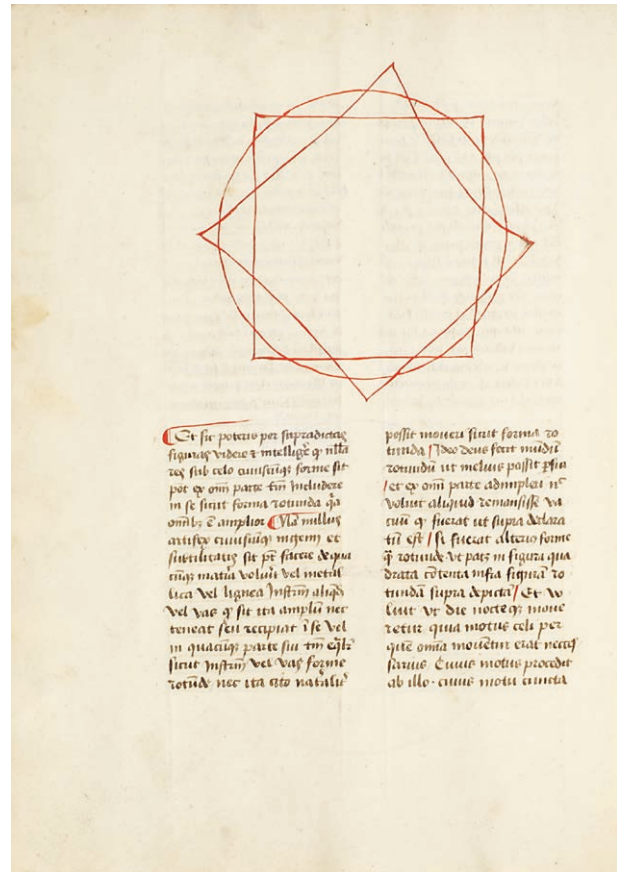 Et sic poteris per supradictas
figuras videre ⁊ intelligẽ ꝙ nĺla
res sub celo cuiuscũqꝫ forme sit
pot̃ ex om̃i parte tm̃ includere
in se sicut forma rotunda q̃a
om̃ibꝫ ẽ amplior Na nullus
artifex cuiuscũqꝫ ingenij et
subtilitatis sit pt̃ facere de qua
cũqꝫ mat̃ia voluit̃ vel metal
lica vel lignea Instrm̃ aliqd̃
vel vas ꝙ sit ita ampliũ nec
teneat seu recipiat ĩ se vel
in quacũqꝫ parte sui tm̃ eq̃lit̃
sicut Instrm̃ vel vas forme
rotũde nec ita cito nat̃alit̃
possit moveri sicut forma ro
tunda Ideo deus fecit mũdũ
rotundũ ut melius possit ꝑfici
et ex om̃i parte adimpleri nc̃
voluit aliquid remansisse va
cuũ ꝙ fuerat ut supra declara
tũ est Si fuerat alterio forme
ꝙ̃ rotunde ut patꝫ in figura qua
drata cõtenta infra figurã ro
tundã supra depicta Et vo
luit ut die nocteqꝫ move
retur quia motus celi per
quẽ omĩa movẽtur erat neces
sarius Cuius motus procedit
ab illo cuius motu cuncta